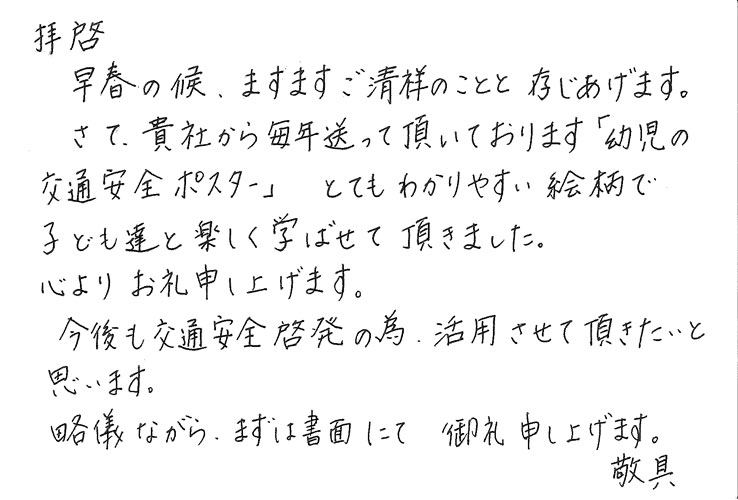 拝啓
早春の候、ますますご清祥のことと存じあげます。
さて、貴社から毎年送って頂いております「幼児の
交通安全ポスター」 とてもわかりやすい絵柄で
子ども達と楽しく学ばせて頂きました。
心よりお礼申し上げます。
今後も交通安全啓発の為、活用させて頂きたいと
思います。
略儀ながら、まずは書面にて 御礼申し上げます。
敬具